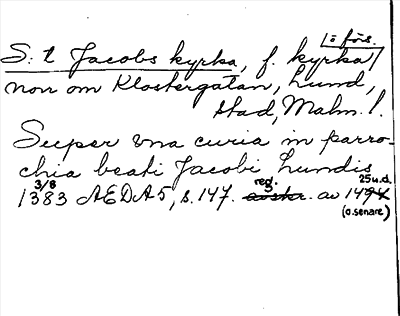 ö förs.
S:t Jacobs kyrka, f. kyrka
norr om Klostergatan, Lund,
stad, Malm. l.
Super vna curia in parro-
chia beati Jacobi Lundis
3/8 reg. 25 u.d.
1383 AEDA 5, s. 147. avskr. av 1494
(o. senare)